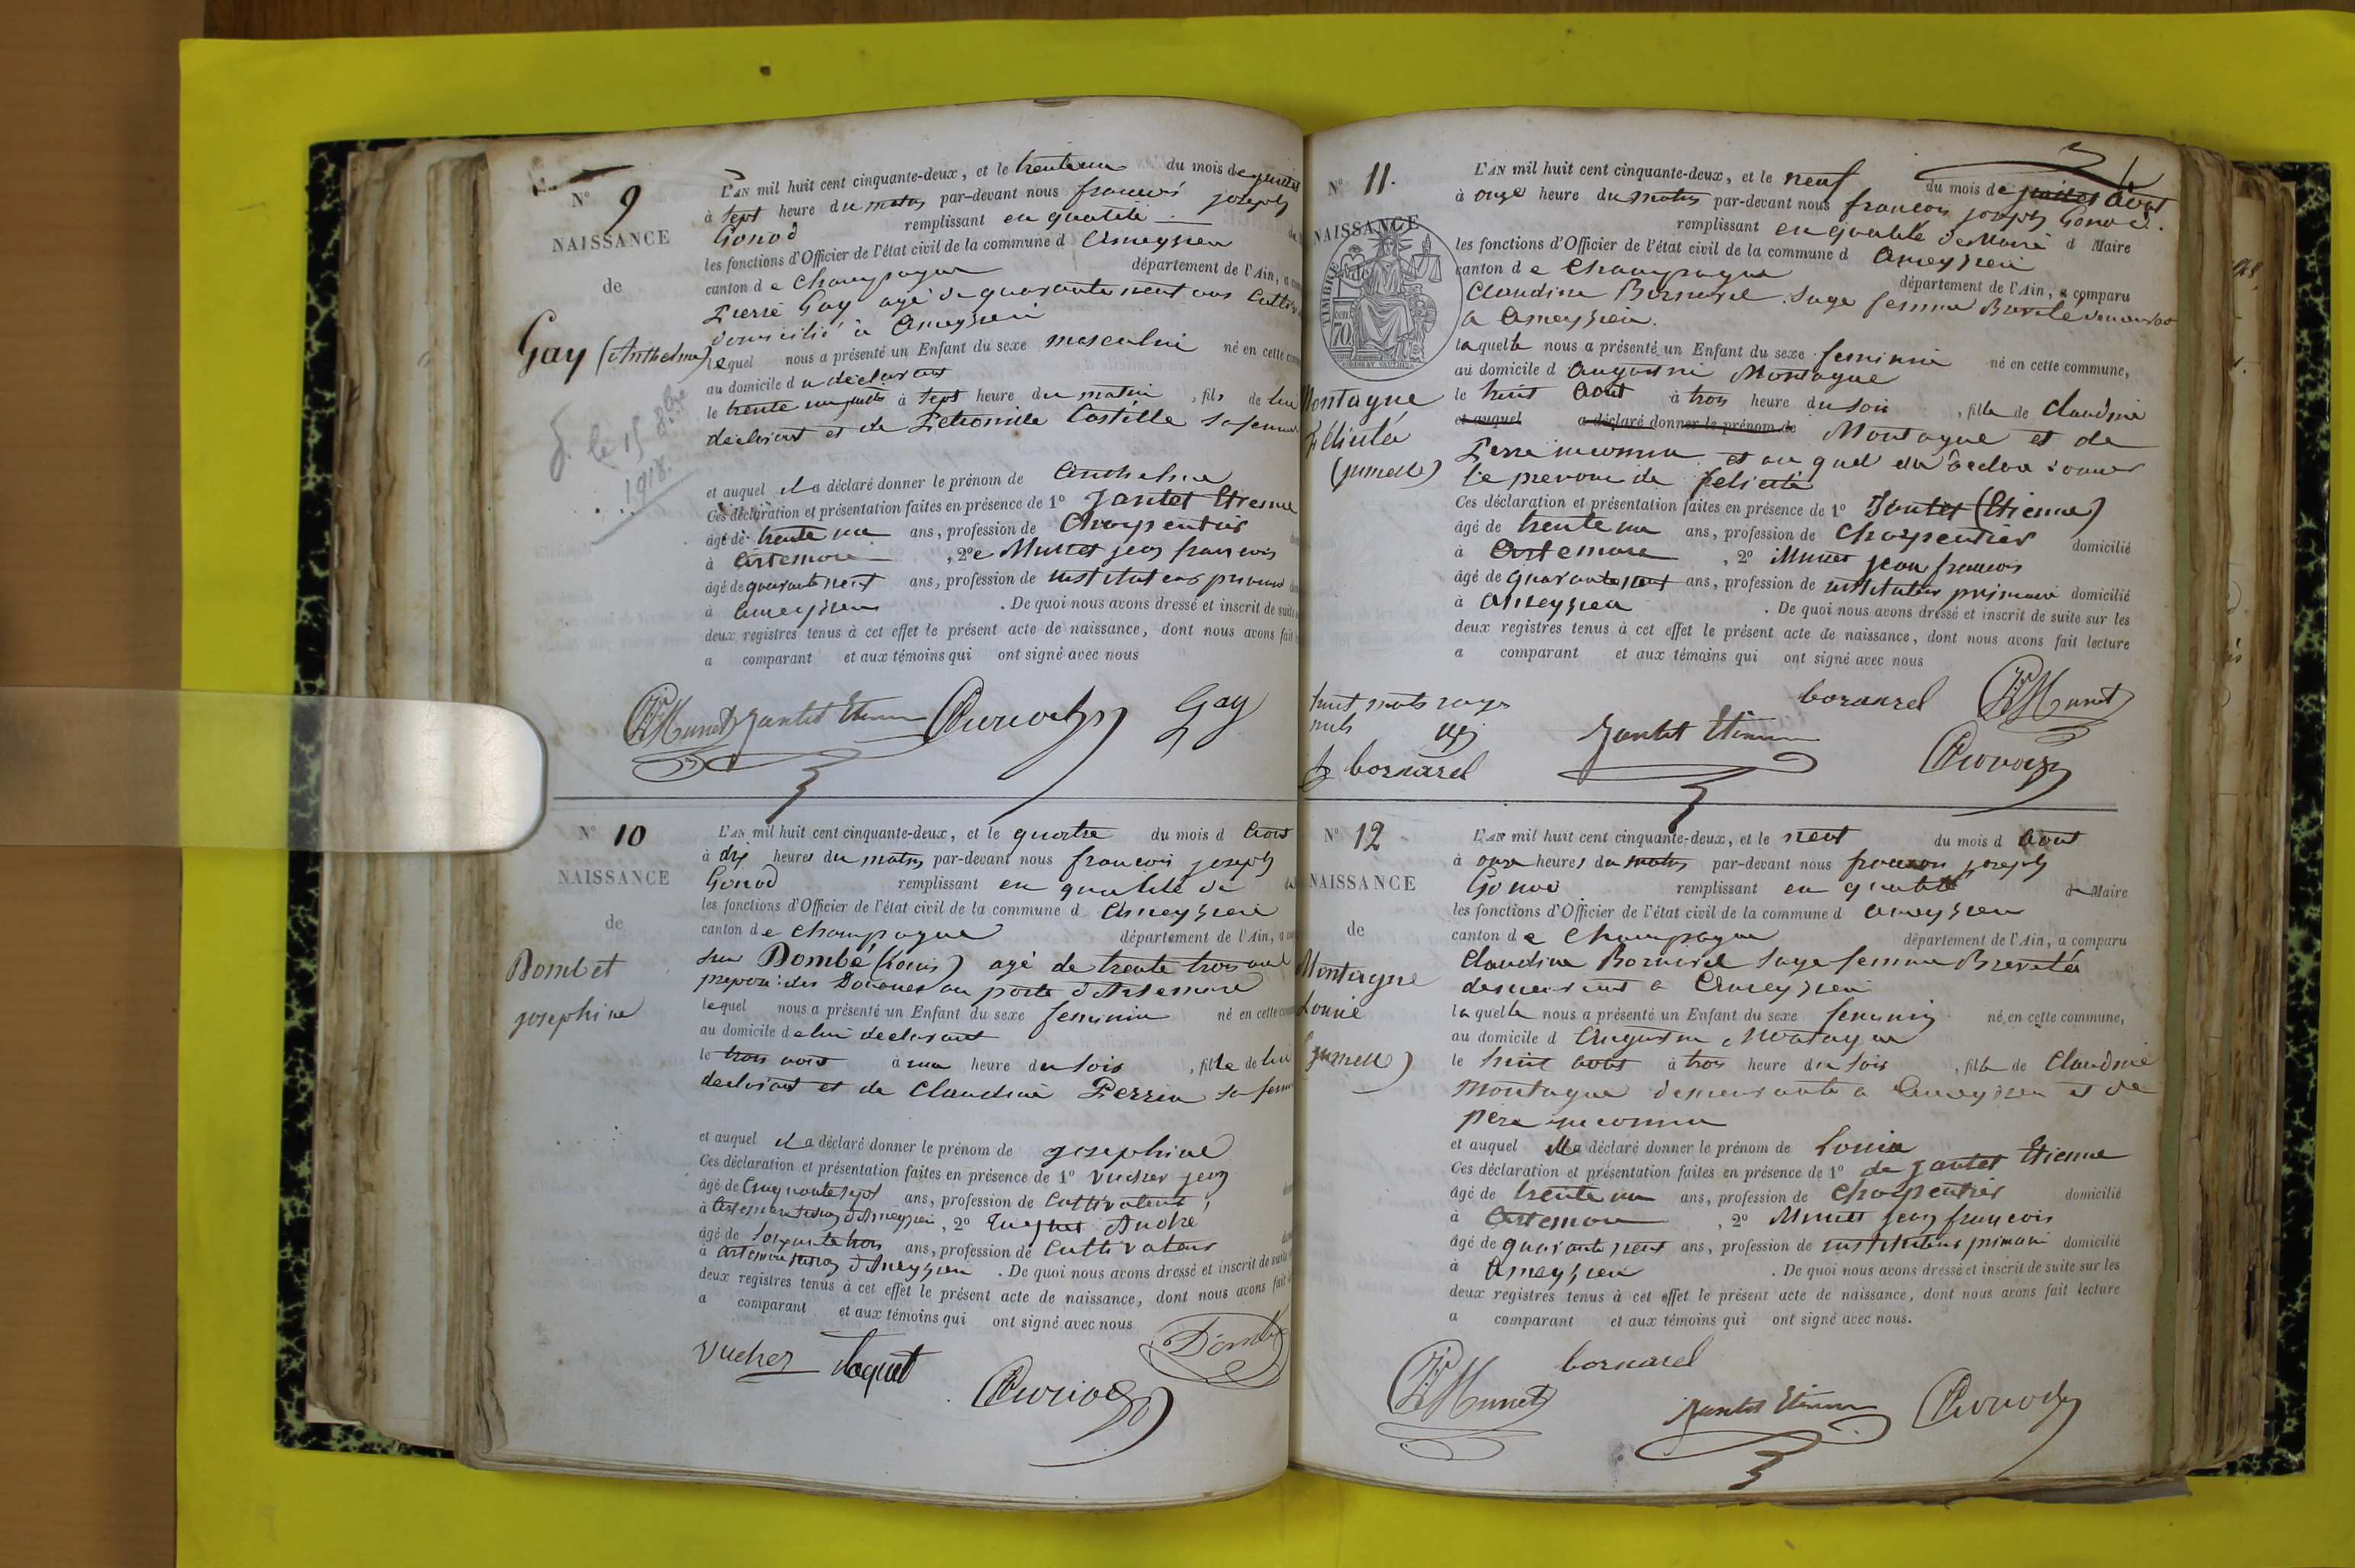 N° 9
NAISSANCE
de
Gay (Anthelme)
d. le 15 8bre
1918.
L'AN mil huit cent cinquante-deux, et le trente un du mois de juillet
à sept heure du matin par-devant nous francois joseph
Gonod remplissant en qualité
les fonctions d'Officier de l'état civil de la commune d Ameyzieu
canton de Champagne département de l'Ain, a
Pierre Gay agé de quarante neuf ans
domicilié à Ameyzieu
lequel nous a présenté un Enfant du sexe masculin né en cette
au domicile du déclarant
le trente un juillet à sept heure du matin, fils de lui
declarant et de Petronille Castille sa femme
et auquel il a déclaré donner le prénom de Anthelme
Ces déclaration et présentation faites en présence de 1° Jantet Etienne
âgé de trente un ans, profession de Charpentier
à Artemare, 2° Munet jean francois
âgé de quarante neuf ans, profession de instituteur primaire
à Ameyzieu. De quoi nous avons dressé et inscrit de suite
deux registres tenus à cet effet le présent acte de naissance, dont nous avons fait
a comparant et aux témoins qui ont signé avec nous
Munet Jantet Etienne Gonod Gay
N° 10
NAISSANCE
de
Dombet
josephine
L'AN mil huit cent cinquante-deux, et le quatre du mois d Aout
à dix heures du matin par-devant nous francois joseph
Gonod remplissant en qualité de
les fonctions d'Officier de l'état civil de la commune d Ameyzieu
canton de Champagne département de l'Ain, a
sieur Dombé (Louis) agé de trente trois ans
préposé des Douanes au poste d'Artemare
lequel nous a présenté un Enfant du sexe feminin né en cette
au domicile de lui declarant
le trois aout à une heure du soir, fille de lui
declarant et de Claudine Perrin sa femme
et auquel il a déclaré donner le prénom de josephine
Ces déclaration et présentation faites en présence de 1° Vucher jean
âgé de Cinquante sept ans, profession de Cultivateur
à Artemare d'Ameyzieu, 2° André
âgé de soixante trois ans, profession de Cultivateur
à Artemare d'Ameyzieu. De quoi nous avons dressé et inscrit de suite
deux registres tenus à cet effet le présent acte de naissance, dont nous avons fait
a comparant et aux témoins qui ont signé avec nous
Vucher Gonod Dombé
N° 11.
NAISSANCE
TIMBRE
70
Montagne
Félicité
(jumelle)
L'AN mil huit cent cinquante-deux, et le neuf du mois de juillet Aout
à onze heure du matin par-devant nous francois joseph Gonod.
remplissant en qualité de Maire d Maire
les fonctions d'Officier de l'état civil de la commune d Ameyzieu
canton de Champagne département de l'Ain, a comparu
Claudine Bornarel. Sage femme Brevetée demeurant
a Ameyzieu.
laquelle nous a présenté un Enfant du sexe feminin né en cette commune,
au domicile d Augustin Montagne
le huit Aout à trois heure du soir, fille de Claudine
et auquel a déclaré donner le prénom de Montagne et de
Pere inconnu et au quel elle a declaré donner
le prenom de Felicité
Ces déclaration et présentation faites en présence de 1° Jantet (Etienne)
âgé de trente un ans, profession de Charpentier domicilié
à Artemare, 2° Munet jean francois
âgé de quarante neuf ans, profession de instituteur primaire domicilié
à Ameyzieu. De quoi nous avons dressé et inscrit de suite sur les
deux registres tenus à cet effet le présent acte de naissance, dont nous avons fait lecture
a comparant et aux témoins qui ont signé avec nous
huit mots rayés
nuls
bornarel Munet
Jantet Etienne Gonod
bornarel
N° 12
NAISSANCE
de
Montagne
Louise
(jumelle)
L'AN mil huit cent cinquante-deux, et le neuf du mois d Aout
à onze heures du matin par-devant nous francois joseph
Gonod remplissant en qualité de Maire
les fonctions d'Officier de l'état civil de la commune d Ameyzieu
canton de Champagne département de l'Ain, a comparu
Claudine Bornarel sage femme Brevetée
demeurant a Ameyzieu
laquelle nous a présenté un Enfant du sexe feminin né en cette commune,
au domicile d Augustin Montagne
le huit Aout à trois heure du soir, fille de Claudine
Montagne demeurante a Ameyzieu et de
pere inconnu
et auquel elle a déclaré donner le prénom de Louise
Ces déclaration et présentation faites en présence de 1° de Jantet Etienne
âgé de trente un ans, profession de Charpentier domicilié
à Artemare, 2° Munet jean francois
âgé de quarante neuf ans, profession de instituteur primaire domicilié
à Ameyzieu. De quoi nous avons dressé et inscrit de suite sur les
deux registres tenus à cet effet le présent acte de naissance, dont nous avons fait lecture
a comparant et aux témoins qui ont signé avec nous.
Munet bornarel
Jantet Etienne Gonod